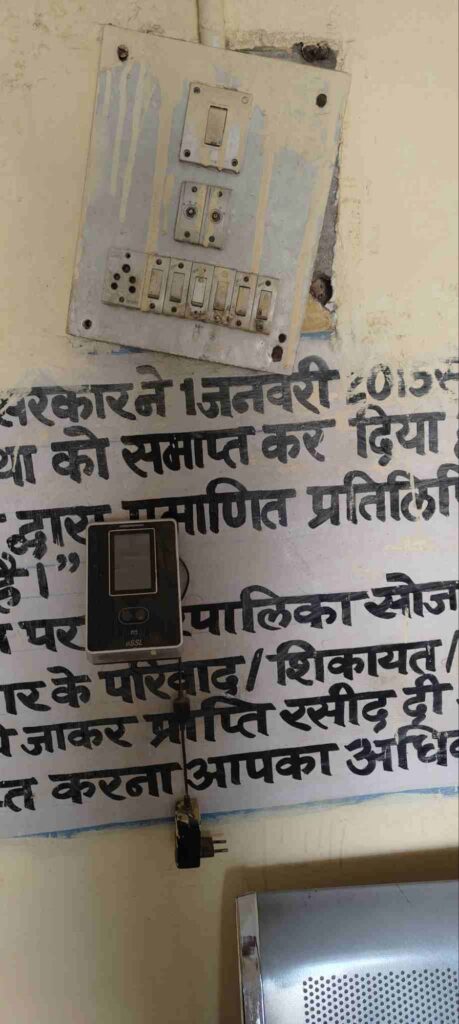 सरकार ने 1 जनवरी 2015 से
को समाप्त कर दिया
द्वारा प्रमाणित प्रतिलिपि
है।”
पर पालिका खोज
के परिवाद / शिकायत /
जाकर प्राप्ति रसीद दी
करना आपका अधि
eSSL